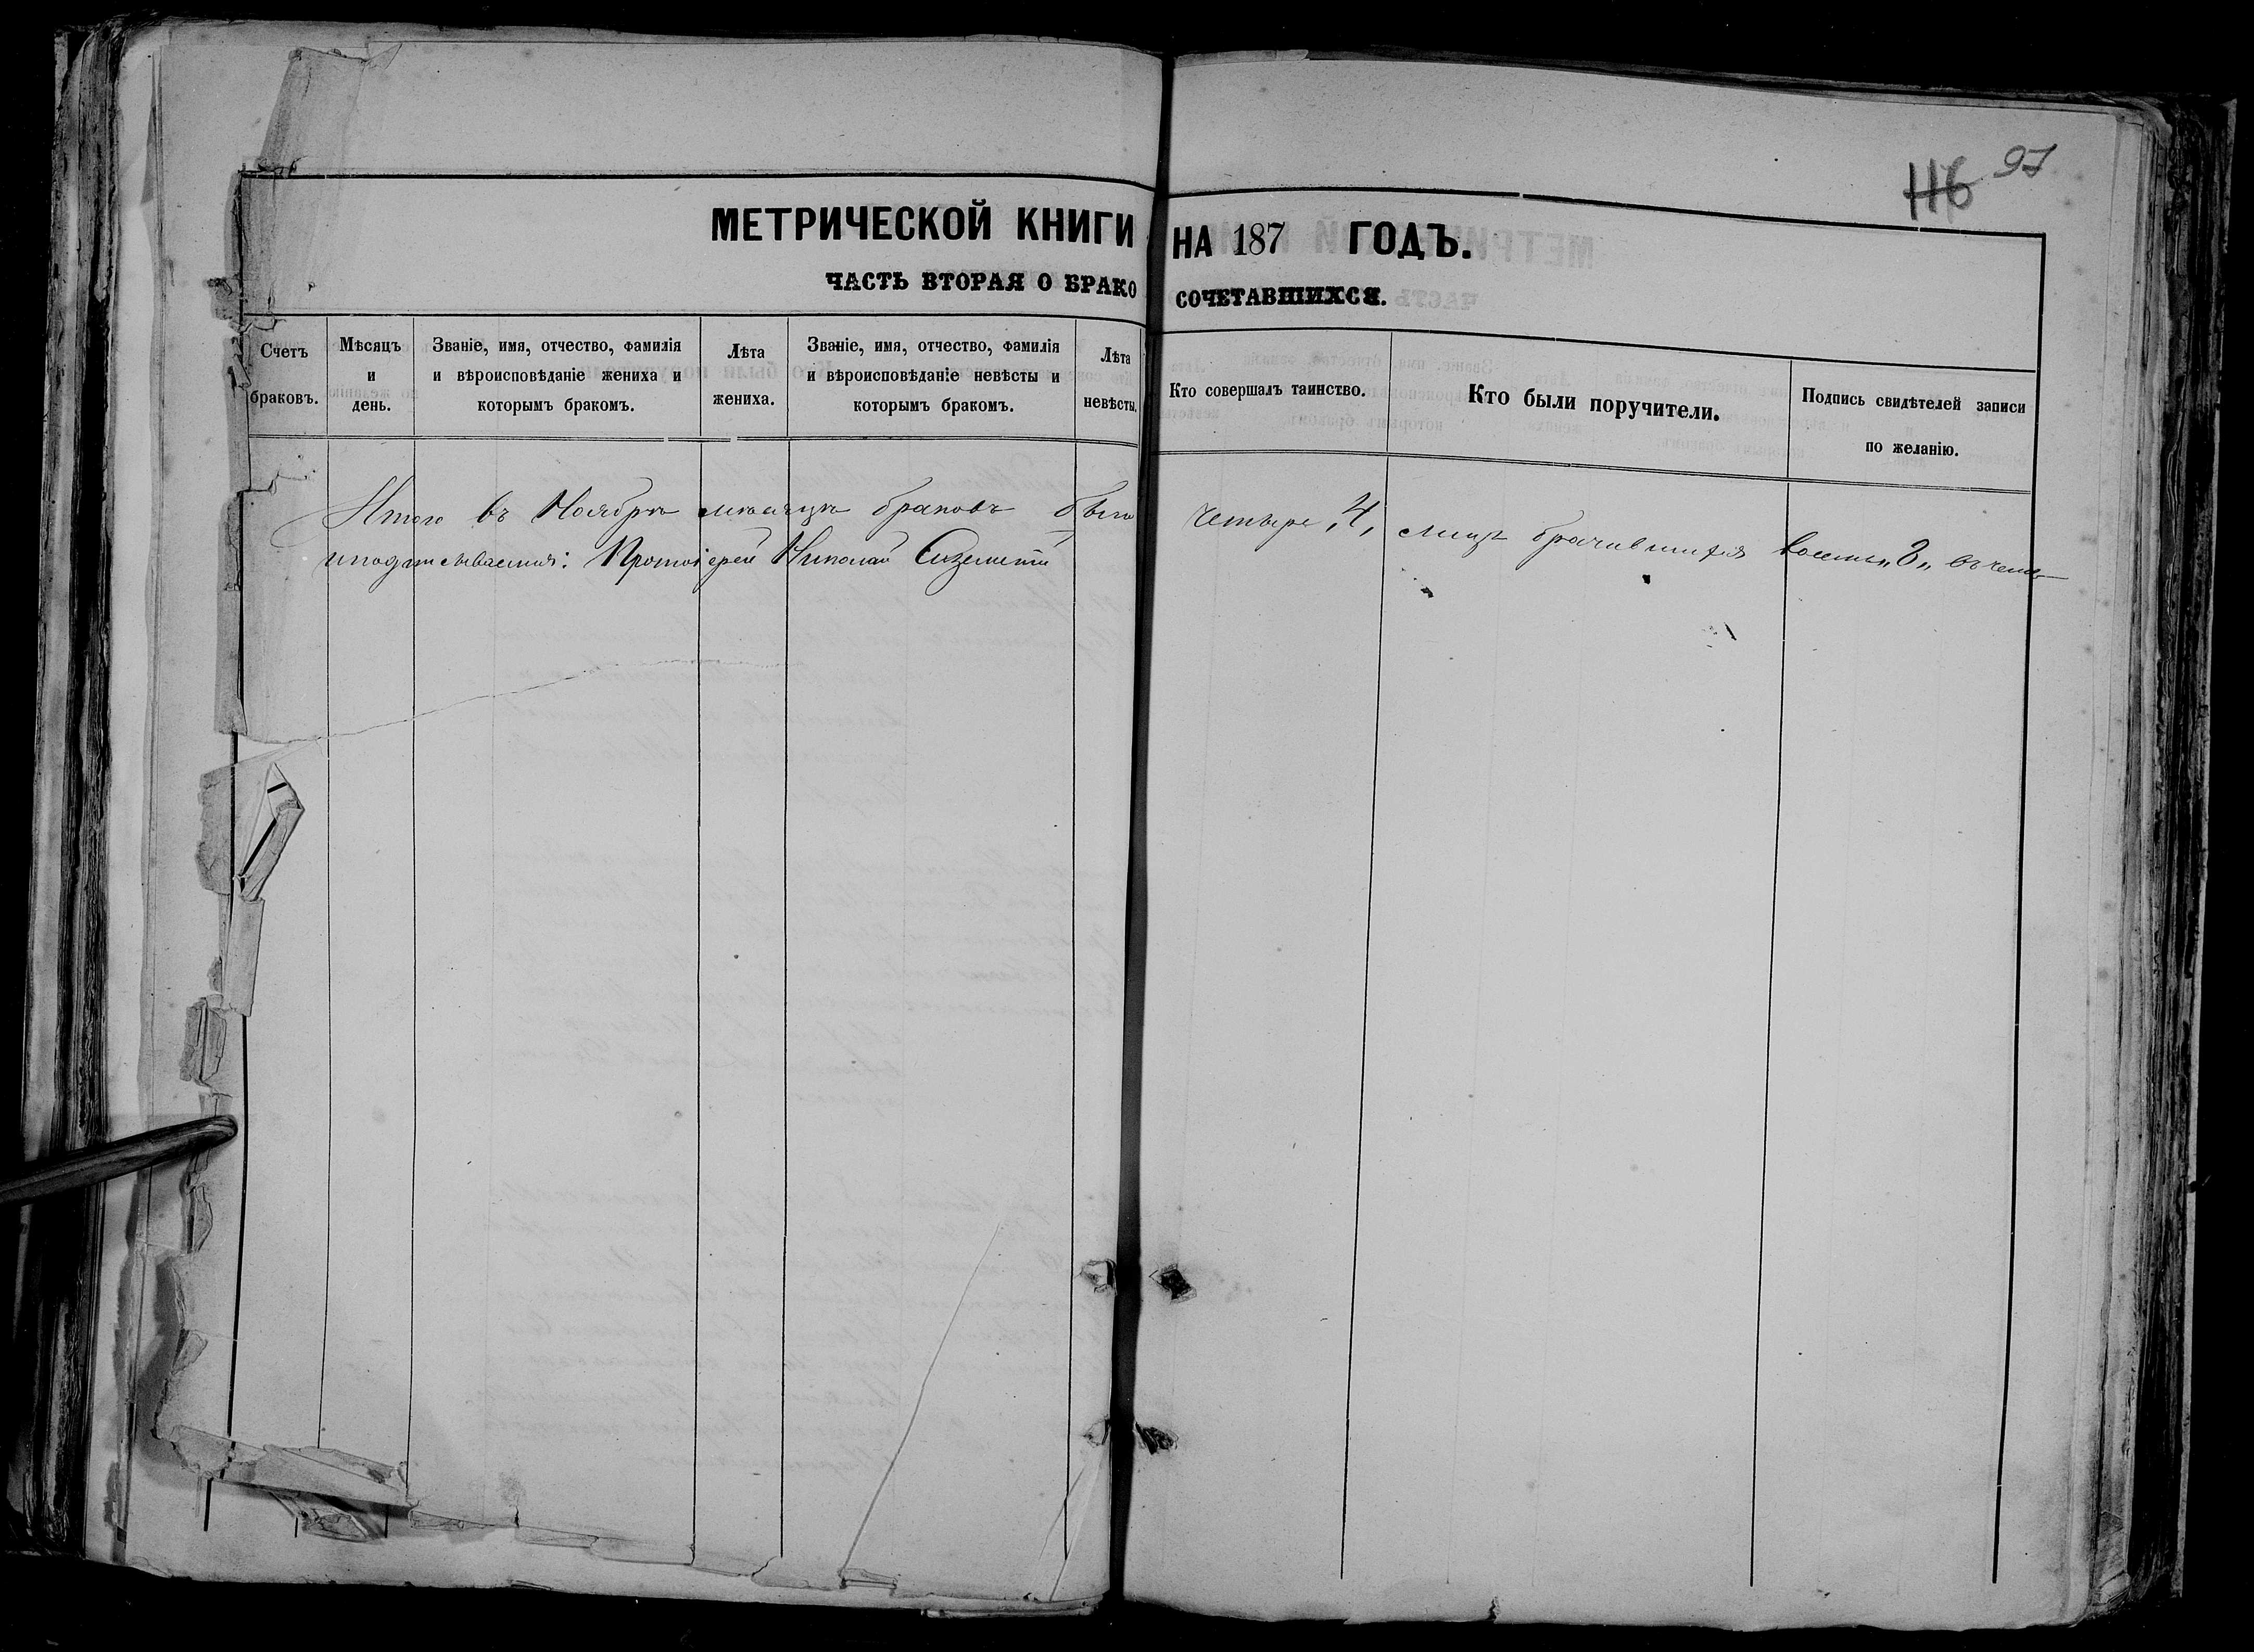 116 97
МЕТРИЧЕСКОЙ КНИГИ НА 187 ГОДЪ.
ЧАСТЬ ВТОРАЯ О БРАКОСОЧЕТАВШИХСЯ.
Счетъ браковъ.
Мѣсяцъ и день.
Званіе, имя, отчество, фамилія и вѣроисповѣданіе жениха и которымъ бракомъ.
Лѣта жениха.
Званіе, имя, отчество, фамилія и вѣроисповѣданіе невѣсты и которымъ бракомъ.
Лѣта невѣсты.
Кто совершалъ таинство.
Кто были поручители.
Подпись свидѣтелей записи по желанію.
Итого въ Ноябрѣ мѣсяцѣ браковъ было четыре „4„ лицъ брачившихся восемь „8„ въ чемъ
и подписываемся: Протоіерей Николай